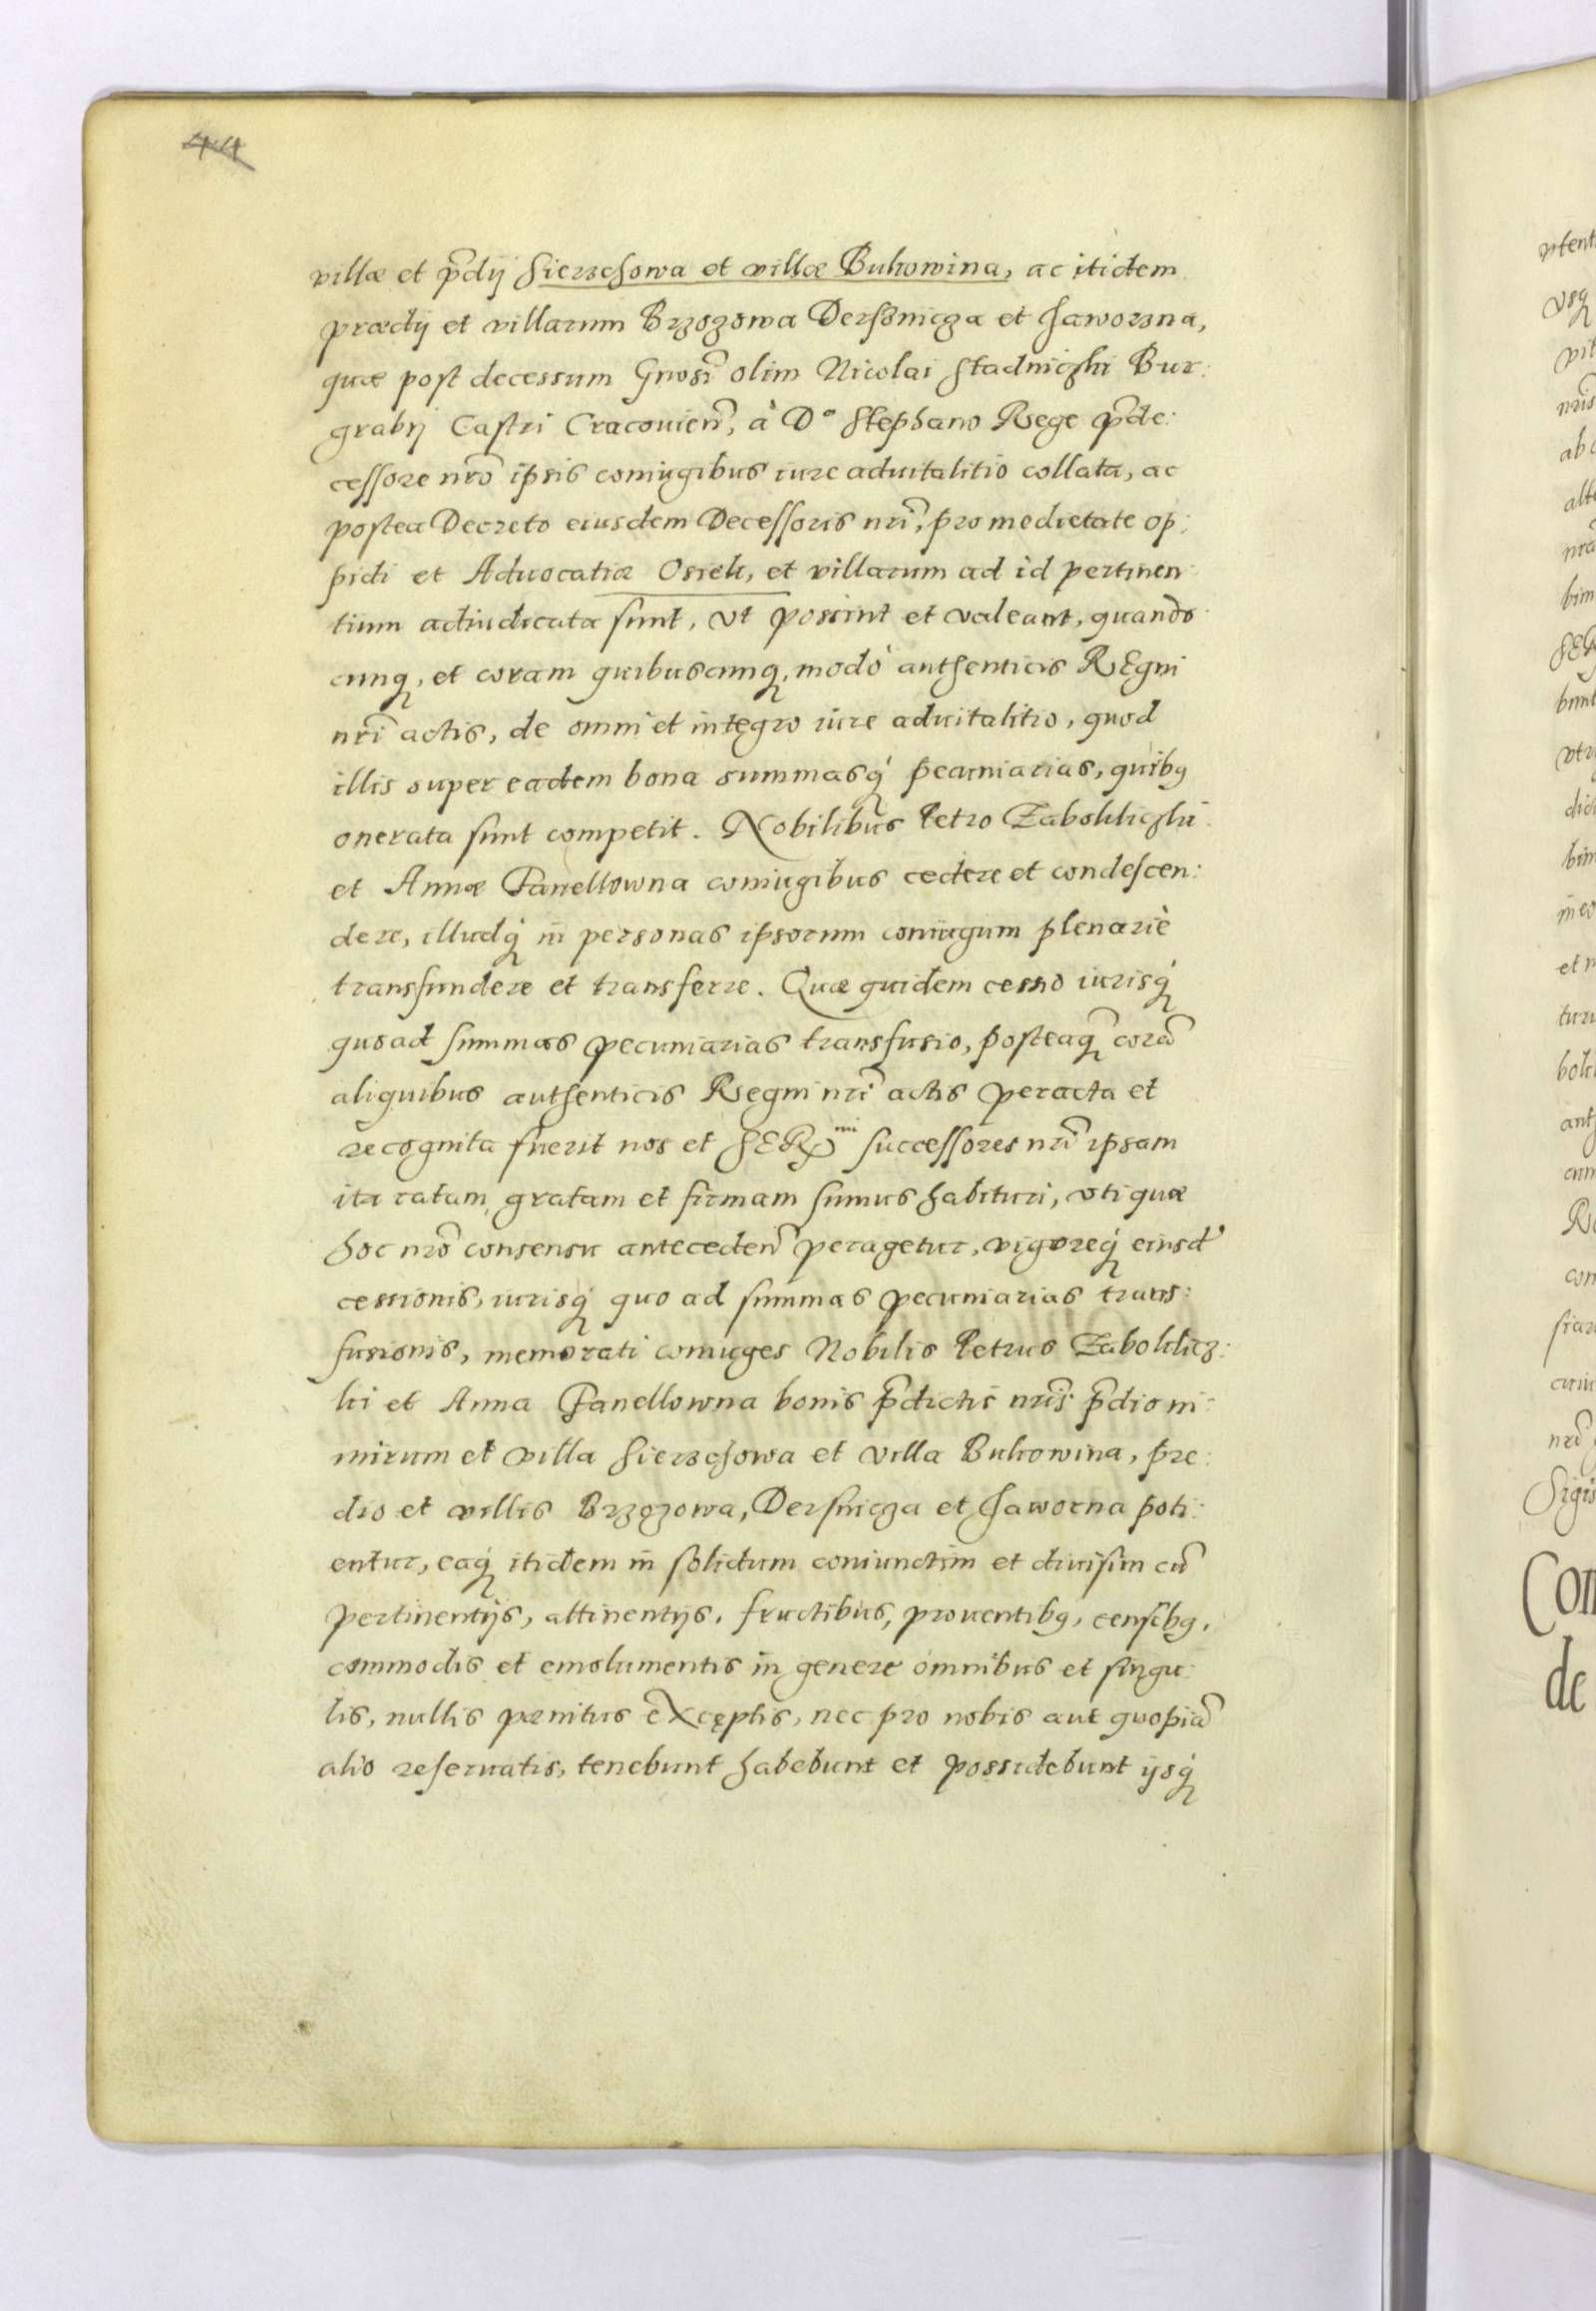 44
villæ et p̃dij Sierzchowa et villæ Bukowina, ac itidem
prædij et villarum Brzozowa Dersznicza et Jaworzna,
quæ post decessum Gnosi̅ olim Nicolai Stadniczki Bur:
grabij Castri Cracovien̅, à D° Stephano Rege p̃de:
cessore nro̅ ipsis coniugibus iure aduitalitio collata, ac
postea Decreto eiusdem Decessoris nri̅, pro medietate op:
pidi et Aduocatiæ Osiek, et villarum ad id pertinen:
tium adiudicata sunt, vt possint et valeant, quando:
cunq, et coram quibuscunq, modò authenticis REgni
nri̅ actis, de omni et integro iure aduitalitio, quod
illis super eadem bona summasq́ pecuniarias, quibq
onerata sunt competit. Nobilibus Petro Zabokliczki
et Annæ Panellowna coniugibus cedere et condescen:
dere, illudq́ in personas ipsorum coniugum plenariè
transfundere et transferre. Quæ quidem cessio iurisq́
quoad summas pecuniarias transfusio, posteaq̃ corã
aliquibus authenticis Regni nri̅ actis peracta et
recognita fuerit nos et SERmi successores nri̅ ipsam
ita ratam, gratam et firmam sumus habituri, vti quæ
hoc nro̅ consensu anteceden̅ peragetur, vigoreq́ eiusd'
cessionis, iurisq́ quo ad summas pecuniarias trans:
fusionis, memorati coniuges Nobilis Petrus Zaboklicz:
ki et Anna Panellowna bonis p̃dictis nris̅ p̃dio ni:
mirum et villa Sierzchowa et villa Bukowina, pre:
dio et villis Brzozowa, Dersnicza et Jaworna poti:
entur, eaq́ itidem in solidum coniunctim et diuisim cũ
pertinentijs, attinentijs, fructibus, prouentibq, censibq,
commodis et emolumentis in genere omnibus et singu:
lis, nullis pænitus exceptis, nec pro nobis aut quopiã
alio reseruatis, tenebunt habebunt et possidebunt ijsq́
vtent
vsq
ab
alt
bim
SER
bunt
dict
bim
et
turi
ant
Con
de